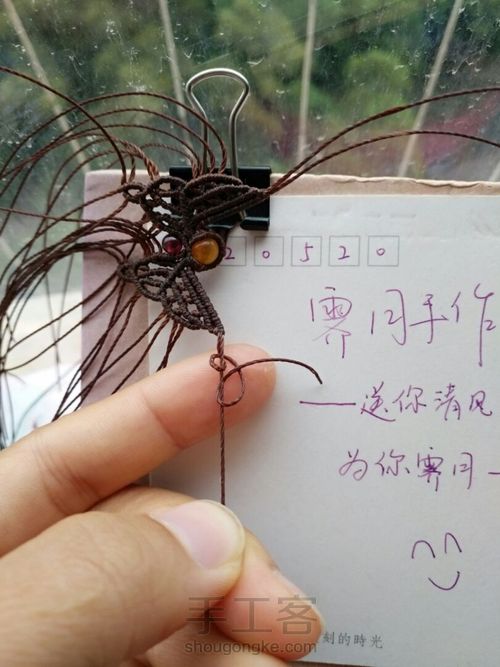 20520
霁月手作
—送你清风
为你霁月—
手工客
刻的時光
shougongke.com